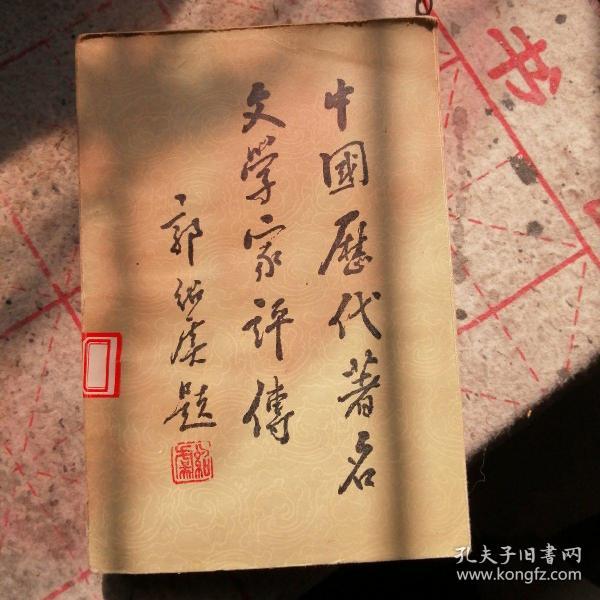 中國歷代著名
文學家評傳
郭紹虞題
紹虞
书
孔夫子旧书网
www.kongfz.com